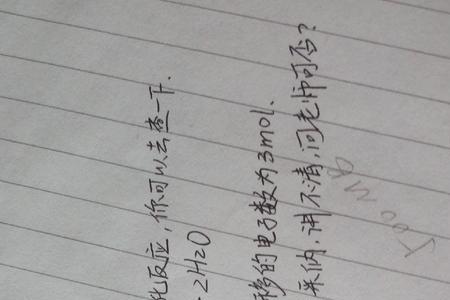 化反应，你可以去查一下.
2H2O
移的电子数为3mol.
采纳，讲不清，问老师可否？